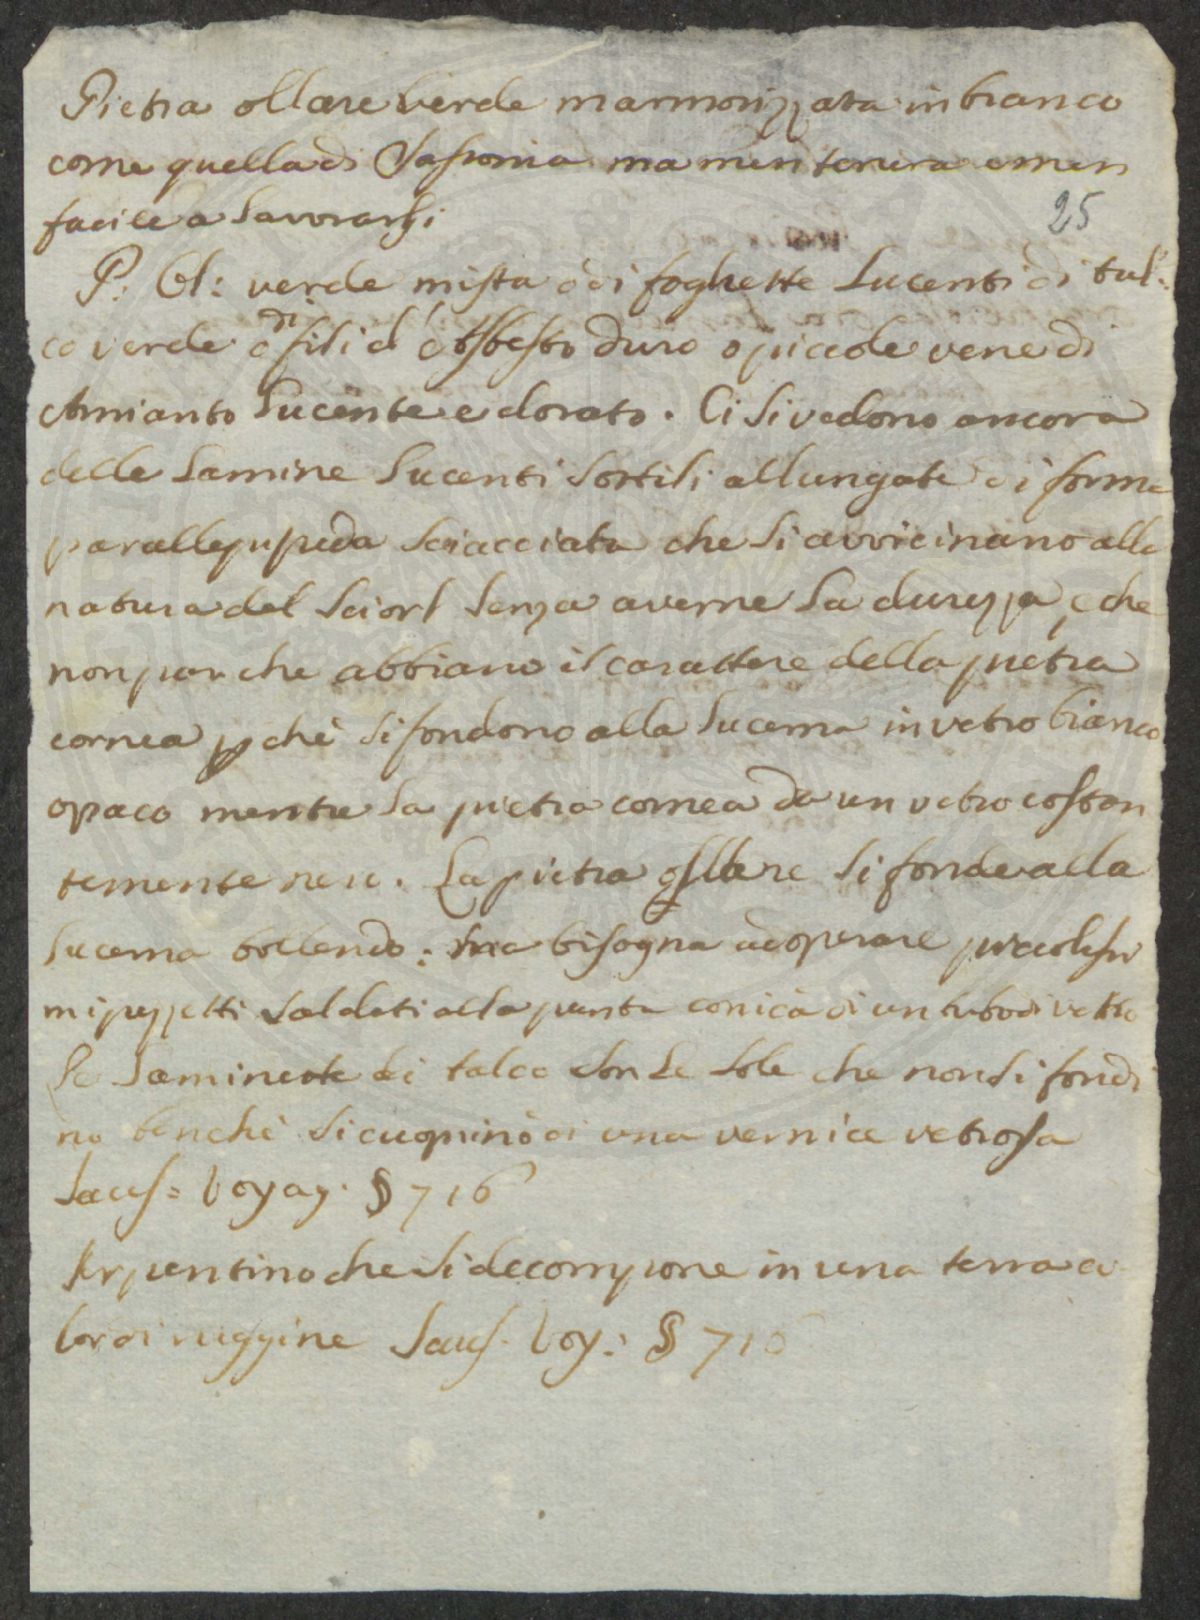 Pietra ollare verde marmorizzata in bianco
come quella di Sassonia ma men tenera e men
facile a lavorarsi
25
P: Ol: verde mista ò di foghette lucenti di tal:
co verde o di fili d'Asbesto duro o piccole vene di
Amianto lucente e dorato. Ci si vedono ancora
delle lamine lucenti sottili allungate di forma
parallepipeda sciacciata che si avvicinano alla
natura del sciorl senza averne la durezza, e che
non par che abbiano il carattere della pietra
cornea pchè si fondono alla lucerna in vetro bianco
opaco mentre la pietra cornea dà un vetro costan
temente nero. La pietra ollare si fonde alla
lucerna bollendo: ma bisogna adoperare piccolissi
mi pezzetti saldati alla punta conica di un tubo di vetro
Le laminette di talco son le sole che non si fondi
no benchè si cuoprino di una vernice vetrosa
Sauss= Voyag. § 716
Serpentino che si decompone in una terra co
lor di ruggine Sauss. Voy: § 716